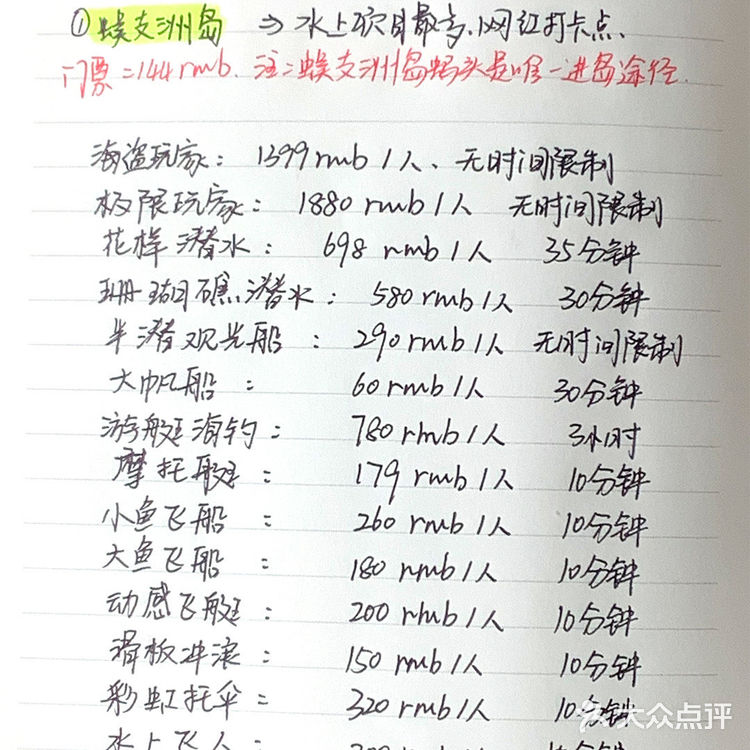 ① 蜈支洲岛 ⇒ 水上项目最多、网红打卡点、
门票=144rmb. 注：蜈支洲岛码头是唯一进岛途径.
海盗玩家： 1399 rmb/人、 无时间限制
极限玩家： 1880 rmb/人 无时间限制
花样潜水： 698 rmb/人 35分钟
珊瑚礁潜水： 580 rmb/人 30分钟
半潜观光船： 290 rmb/人 无时间限制
大帆船： 60 rmb/人 30分钟
游艇海钓： 780 rmb/人 3小时
摩托艇： 179 rmb/人 10分钟
小鱼飞船： 260 rmb/人 10分钟
大鱼飞船： 180 rmb/人 10分钟
动感飞艇： 200 rmb/人 10分钟
滑板冲浪： 150 rmb/人 10分钟
彩虹托伞： 320 rmb/人 10分钟
水上飞人：
大众点评